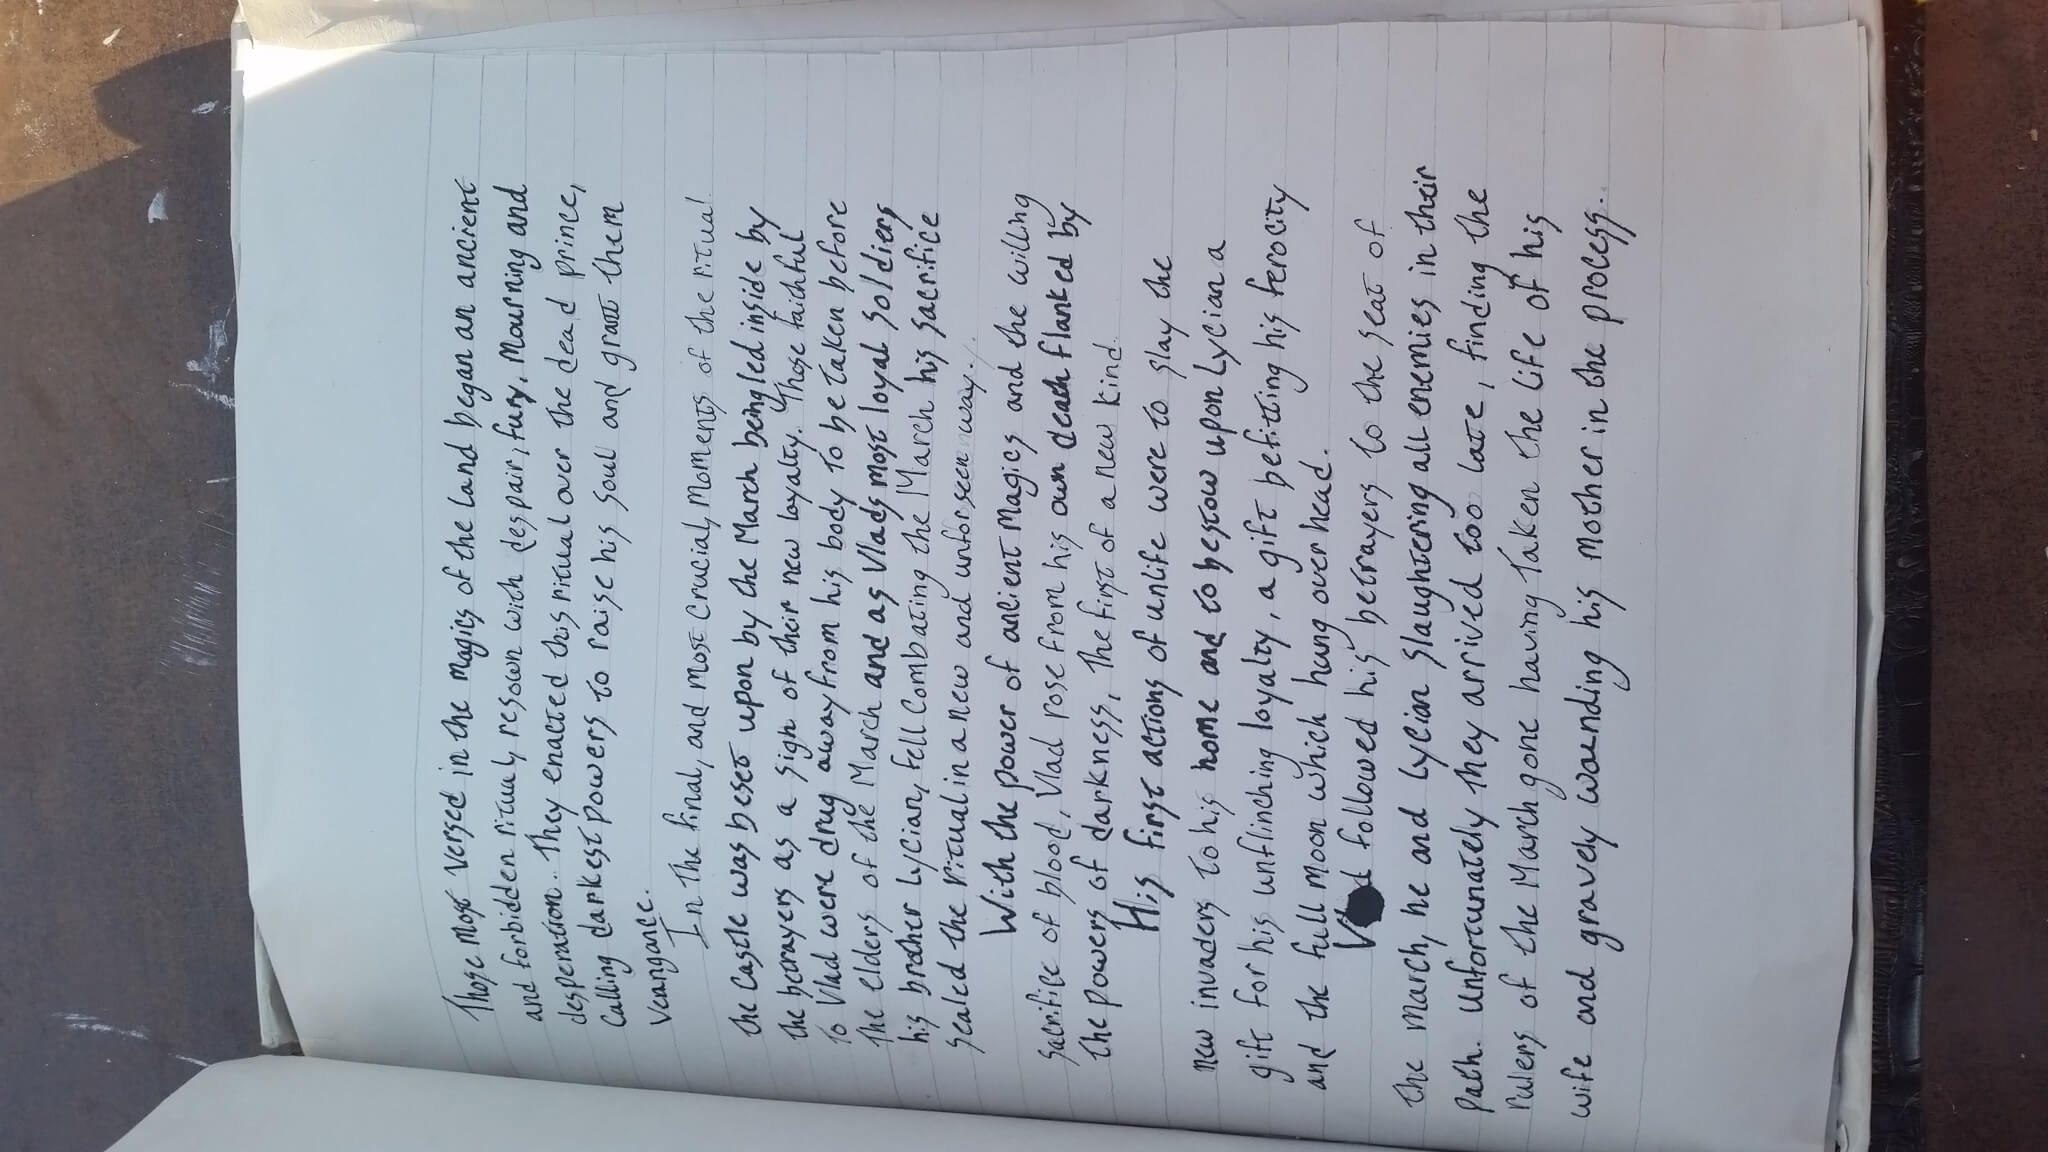 Those most versed in the magics of the land began an ancient
and forbidden ritual, resown with despair, fury, mourning and
desperation.. They enacted this ritual over the dead prince,
Calling darkest powers to raise his soul and grant them
Veangance.
In the final, and most crucial, moments of the ritual
the castle was beset upon by the March being led inside by
the betrayers as a sign of their new loyalty. Those faithful
to Vlad were drug away from his body to be taken before
the elders of the March and as Vlads most loyal soldiers
his brother Lycian, fell combating the March his sacrifice
sealed the ritual in a new and unforseen way.
With the power of ancient magics and the willing
sacrifice of blood, Vlad rose from his own death flanked by
the powers of darkness, the first of a new kind.
His first actions of unlife were to slay the
new invaders to his home and to bestow upon Lycian a
gift for his unflinching loyalty, a gift befitting his ferocity
and the full moon which hung over head.
Vlad followed his betrayers to the seat of
the march, he and Lycian slaughtering all enemies in their
path. Unfortunately they arrived too late, finding the
rulers of the March gone having taken the life of his
wife and gravely wounding his mother in the process.